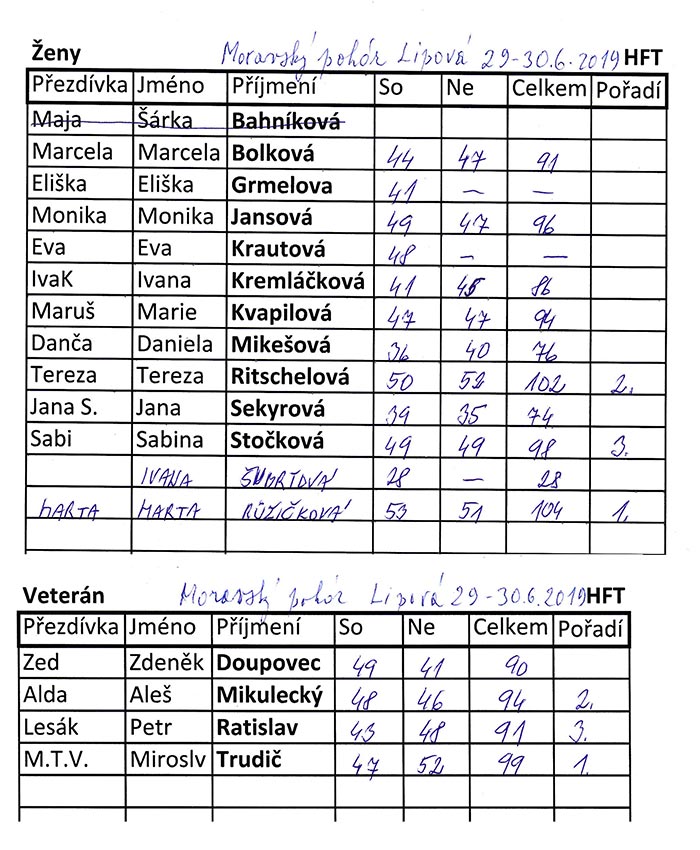 Ženy Moravský pohár Lipová 29-30.6.2019 HFT
Přezdívka Jméno Příjmení So Ne Celkem Pořadí
Maja Šárka Bahníková
Marcela Marcela Bolková 44 47 91
Eliška Eliška Grmelova 41 — —
Monika Monika Jansová 49 47 96
Eva Eva Krautová 48 – —
IvaK Ivana Kremláčková 41 45 86
Maruš Marie Kvapilová 47 47 94
Danča Daniela Mikešová 36 40 76
Tereza Tereza Ritschelová 50 52 102 2.
Jana S. Jana Sekyrová 39 35 74
Sabi Sabina Stočková 49 49 98 3.
IVANA 28 — 28
MARTA MARTA RŮŽIČKOVÁ 53 51 104 1.
Veterán Moravský pohár Lipová 29-30.6.2019 HFT
Přezdívka Jméno Příjmení So Ne Celkem Pořadí
Zed Zdeněk Doupovec 49 41 90
Alda Aleš Mikulecký 48 46 94 2.
Lesák Petr Ratislav 43 48 91 3.
M.T.V. Miroslv Trudič 47 52 99 1.